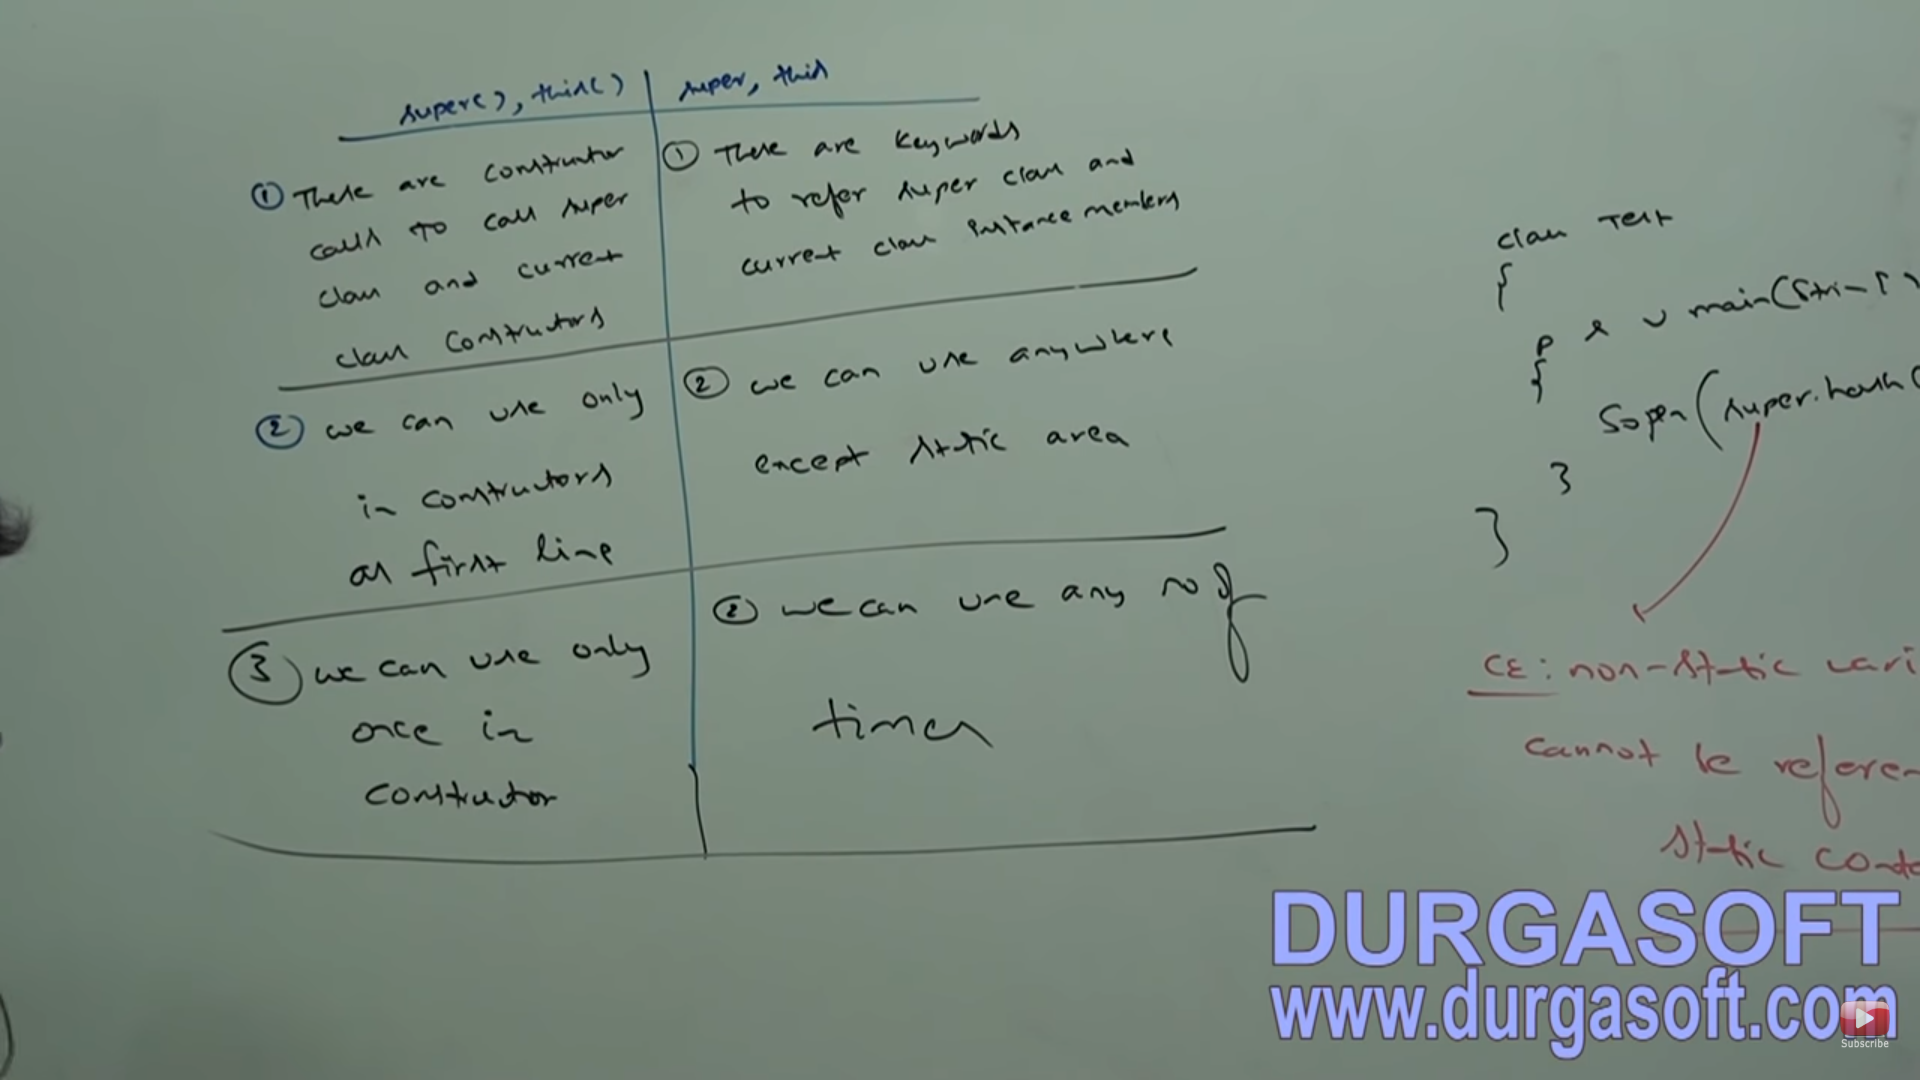 super(), this()
super, this
① These are constructor
calls to call super
class and current
class constructors
① These are keywords
to refer super class and
current class instance members
② we can use only
in constructors
as first line
② we can use anywhere
except static area
③ we can use only
once in
constructor
② we can use any no of
times
class Test
{
p s v main(Stri-[]
{
Sopln(super.hash(
}
}
CE: non-static vari
cannot be referen
static conte
DURGASOFT
www.durgasoft.com
Subscribe